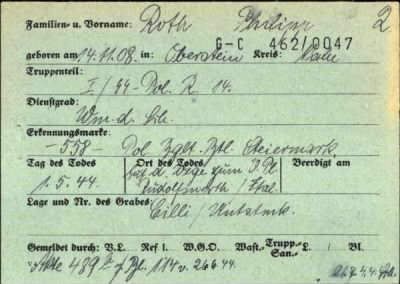 Familien- u. Vorname: Roth Philipp 2
G-C 462/0047
geboren am 14.11.08. in: Oberstein Kreis: Nahe
Truppenteil:
I/SS-Pol. R. 14.
Dienstgrad:
Wm. d. 
Erkennungsmarke:
-558- Pol. Btl. Steiermark
Tag des Todes Ort des Todes Beerdigt am
auf d. Wege zum
1.5.44. Rudolfswerth /
Lage und Nr. des Grabes:
Cilli /
Gemeldet durch: V.L. Ref I. W.G.O. Wast.- Trupp.- San.- L. / Bl.
489 114 v. 26.6.44.